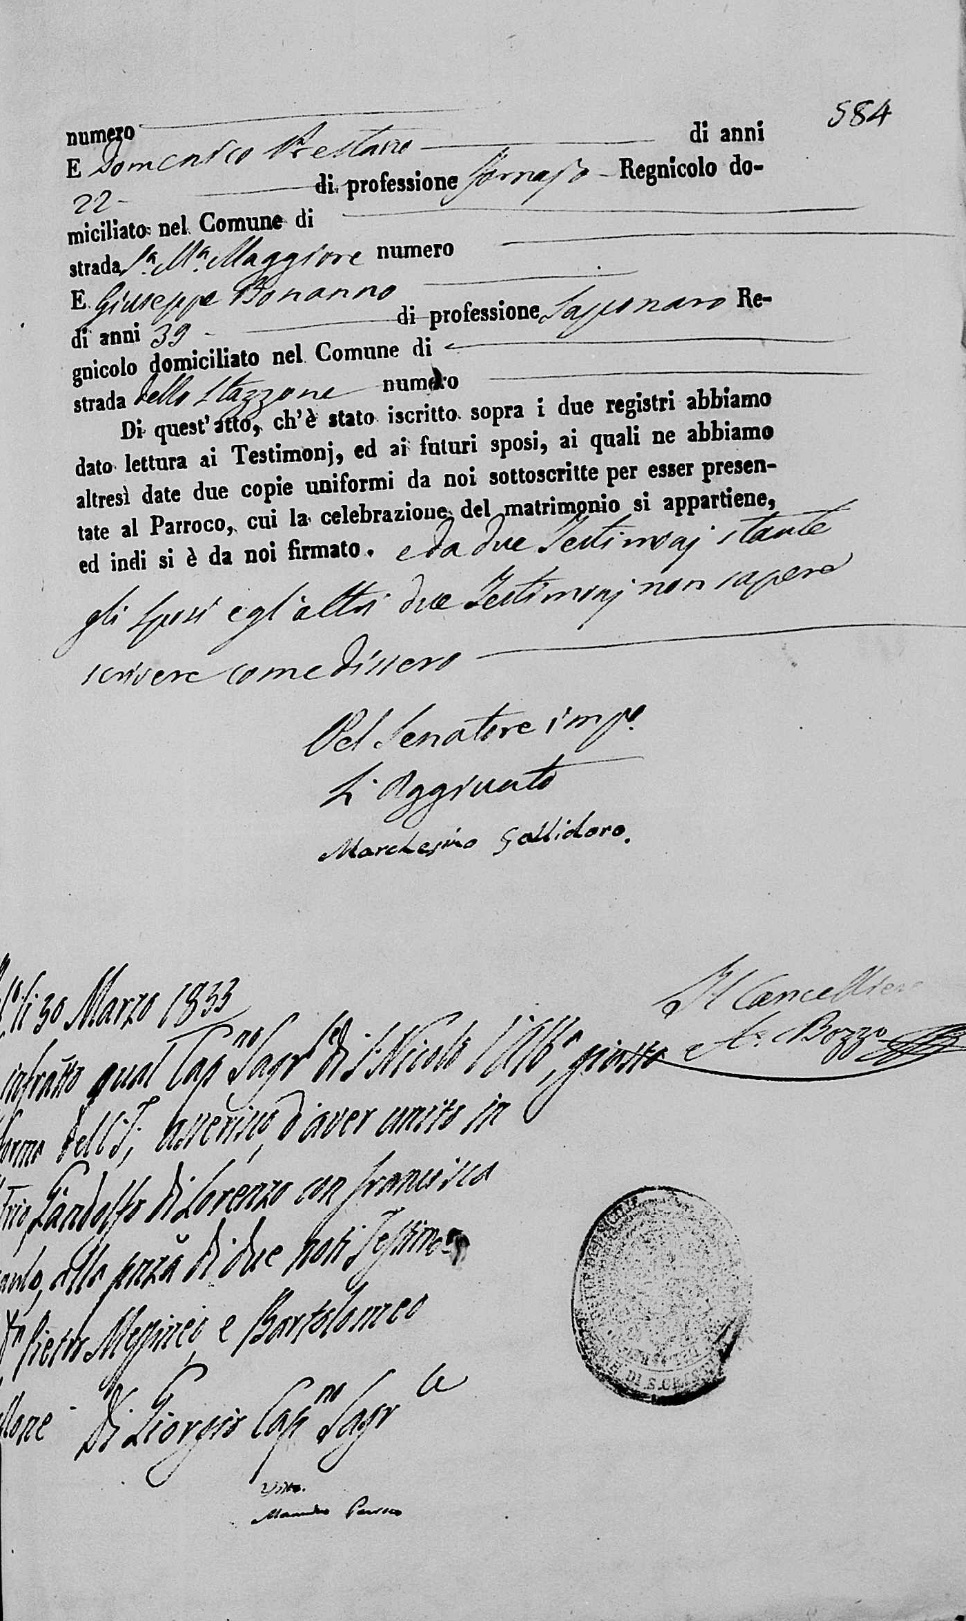 584
numero
E Domenico Prestano di anni
22 di professione Fornajo Regnicolo do-
miciliato nel Comune di
strada S.a M.a Maggiore numero
E Giuseppe Bonanno
di anni 39 di professione Saponaro Re-
gnicolo domiciliato nel Comune di
strada dello Stazzone numero
Di quest'atto, ch'è stato iscritto sopra i due registri abbiamo
dato lettura ai Testimonj, ed ai futuri sposi, ai quali ne abbiamo
altresì date due copie uniformi da noi sottoscritte per esser presen-
tate al Parroco, cui la celebrazione del matrimonio si appartiene,
ed indi si è da noi firmato. e da due Testimonj stante
gli sposi e gl'altri due Testimonj non sapere
scrivere come dissero
Pel Senatore imp.o
L'Aggiunto
Marchesino Gallidoro.
Il Cancelliere
Bozzo
li 30 Marzo 1833
qual Cap.no Sagr.le di S. Nicolò l'Alb.a, giusto
dell' asserisco, d'aver unito in
Gandolfo di Lorenzo con Francesca
alla pnza di due noti Testimo
Pietro Messineo, e Bartolomeo
Di Giorgio Cap.no Sagr.le
Visto
DI S.